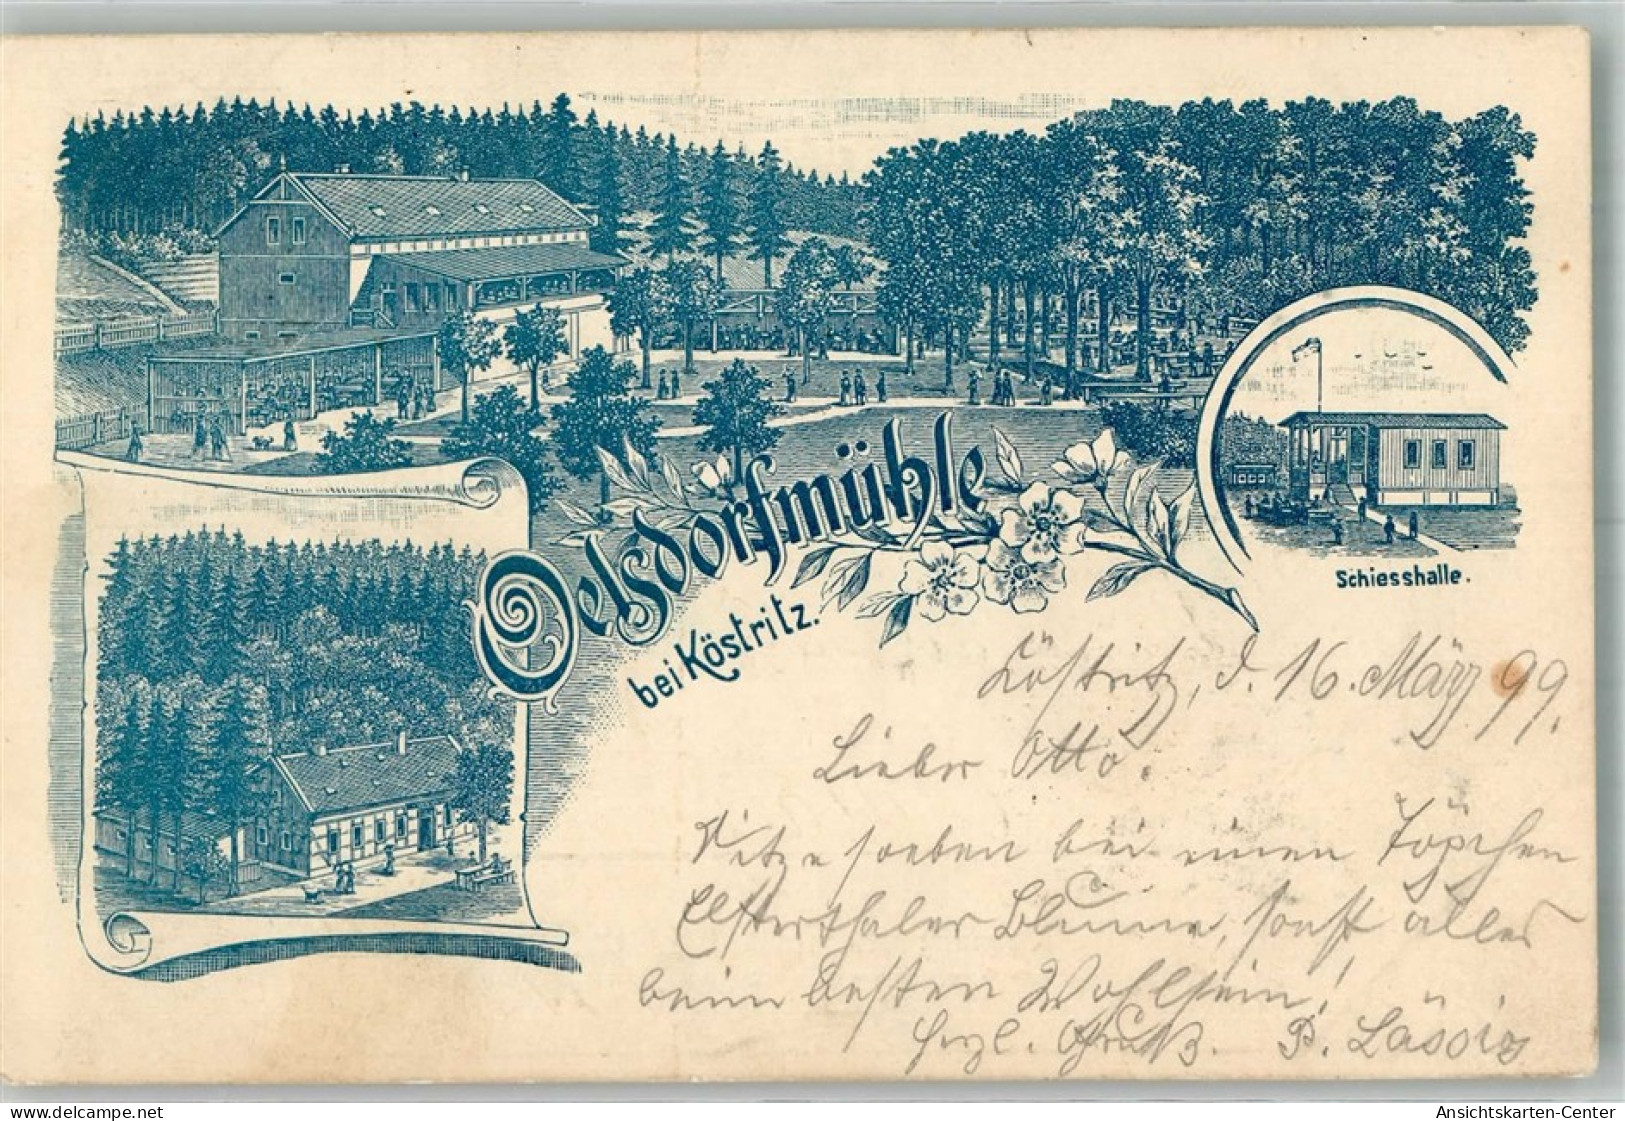 Oelsdorfmühle
bei Köstritz.
Schiesshalle.
Köstritz, d. 16. März 99.
Lieber Otto.
Sitze soeben bei einem Töpfchen
Elsterthaler Blume, sonst alles
beim besten Wohlsein!
Herzl. Gruß. P.
delcampe.net
Ansichtskarten-Center